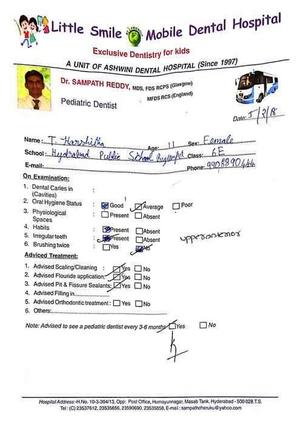 Little Smile Mobile Dental Hospital
Exclusive Dentistry for kids
A UNIT OF ASHWINI DENTAL HOSPITAL (Since 1997)
Dr. SAMPATH REDDY, MDS, FDS RCPS (Glasgow)
MFDS RCS (England)
Pediatric Dentist
Date: 5/2/18
Name: T. Harshitha Age: 11 Sex: Female
School: Hyderabad Public School Class: 6E
E-mail: Phone:
On Examination:
1. Dental Caries in (Cavities)
2. Oral Hygiene Status Good Average Poor
3. Physiological Spaces Present Absent
4. Habits Present Absent
5. Irregular teeth Present Absent upper anterior
6. Brushing twice Yes No
Adviced Treatment:
1. Advised Scaling/Cleaning Yes No
2. Advised Flouride application Yes No
3. Advised Pit & Fissure Sealants Yes No
4. Advised Filling in
5. Advised Orthodontic treatment Yes No
6. Others:
Note: Advised to see a pediatric dentist every 3-6 months Yes No
Hospital Address - H.No. 10-3-304/13, Opp: Post Office, Humayunnagar, Masab Tank, Hyderabad - 500 028. T.S.
Tel: (C) 23537612, 23535656, 23590690, 23535858, E-mail: sampathcheruku@yahoo.com